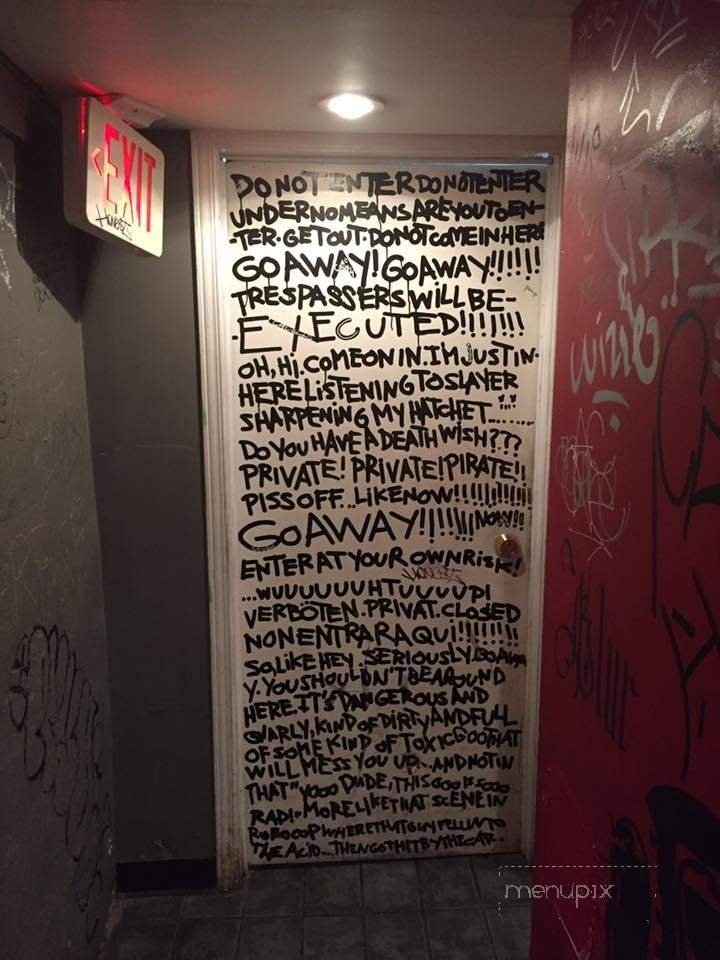 EXIT
DO NOT ENTER DO NOT ENTER
UNDER NO MEANS ARE YOU TO EN-
-TER. GET OUT. DO NOT COME IN HERE
GO AWAY! GO AWAY!!!!!!
TRESPASSERS WILL BE-
-EXECUTED!!!!!!!
OH, Hi. COME ON IN. I'M JUST IN-
HERE LISTENING TO SLAYER
SHARPENING MY HATCHET........
DO YOU HAVE A DEATH WISH???
PRIVATE! PRIVATE! PIRATE!!
PISS OFF.. LIKE NOW!!!!!!!!!!!
GO AWAY!!!!!!! NOW!!!
ENTER AT YOUR OWN RISK!
...WUUUUUUHTUUUUUP!
VERBÖTEN. PRIVAT. CLOSED
NON ENTRAR AQUI!!!!!!!!
SO, LIKE HEY. SERIOUSLY. GO AWA
Y. YOU SHOULDN'T BE AROUND
HERE. IT'S DANGEROUS AND
GNARLY, KIND OF DIRTY AND FULL
OF SOME KIND OF TOXIC GOO THAT
WILL MESS YOU UP... AND NOT IN
THAT "YOOO DUDE, THIS GOO IS SOOO
RAD!" MORE LIKE THAT SCENE IN
ROBOCOP WHERE THAT GUY FELL INTO
THE ACID... THEN GOT HIT BY THE CAR.
menupix